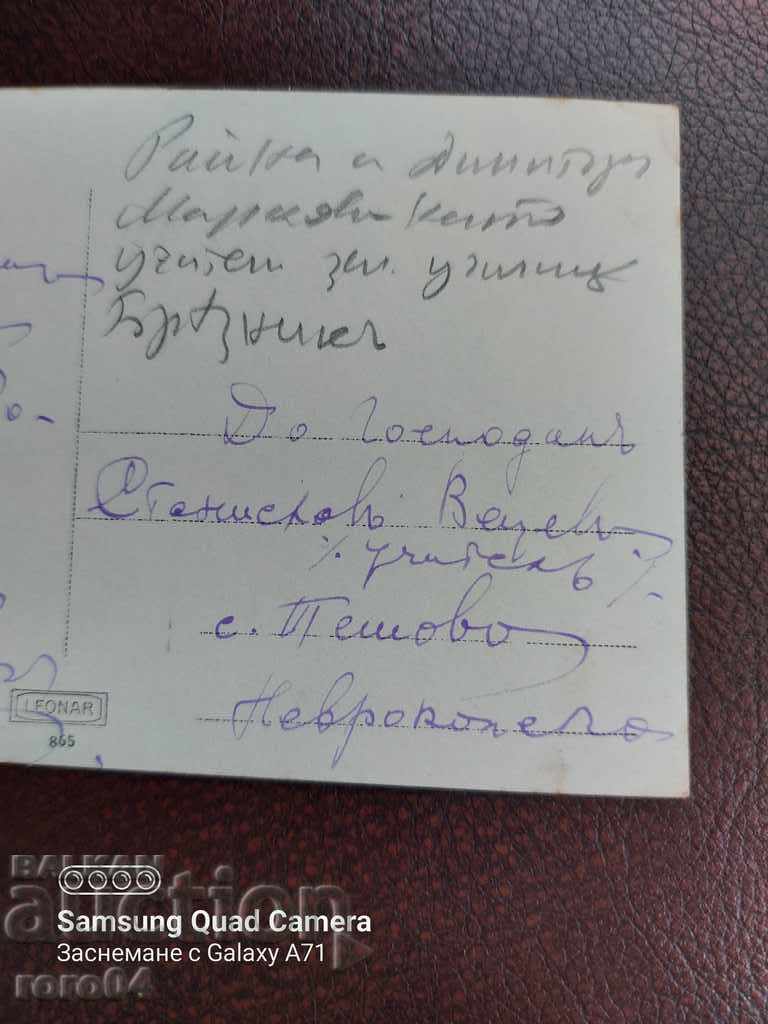 Райка и Димитър
Маркови като
учители зем. училище
Брѣзникъ
До Господинъ
Станиславъ Вецевъ
% учитель %
с. Тешово
Неврокопско
LEONAR
865
BALKAN
auction
Samsung Quad Camera
Заснемане с Galaxy A71
roro04